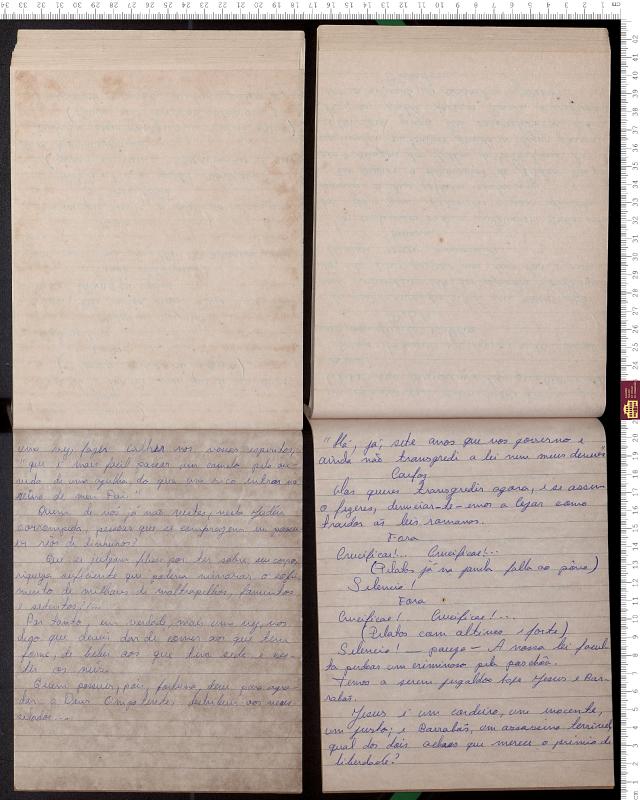 uma vez, fazer calhar nos vossos espiritos,
"que é mais facil passar um camelo pelo
de uma agulha do que um rico entrar no
reino de meu Pai."
Quem de nós já não sentiu, nesta Judéa
corrompida, pessoas que se comprazem em possui-
rem rios de dinheiros?
Que se julgam felizes por ter sobre seu corpo,
riqueza suficiente que poderia minorar o sofri-
mento de milhares de maltrapilhos, famintos
e sedentos!!...
Por tanto, em verdade, mais uma vez, vos
digo que deveis dar de comer ao que tem
fome, de beber aos que tem sede e ves-
tir os nus.
Quem possuir, pois, fortuna, deve para agra-
dar a Deus Onipotente, distribuir aos neces-
sitados...
"Há, já, sete anos que vos governo e
ainda não transgredi a lei nem meus deveres
Caifas
Mas queres transgredir agora, e se assim
o fizeres, denunciar-te-emos a Cezar como
traidor ás leis romanas.
Fora
Crucificai!... Crucificai!...
(Pilatos já na janela falla ao povo)
Silencio!
Fora
Crucificai! Crucificai!...
(Pilatos com altives e forte)
Silencio! — pausa — A nossa lei facul-
ta perdoar um criminoso pela paschôa.
Temos a serem julgados hoje Jesus e Bar-
rabás.
Jesus é um cordeiro, um inocente,
um justo; e Barrabás, um assassino terrivel,
qual dos dois achaes que merece o premio da
liberdade?